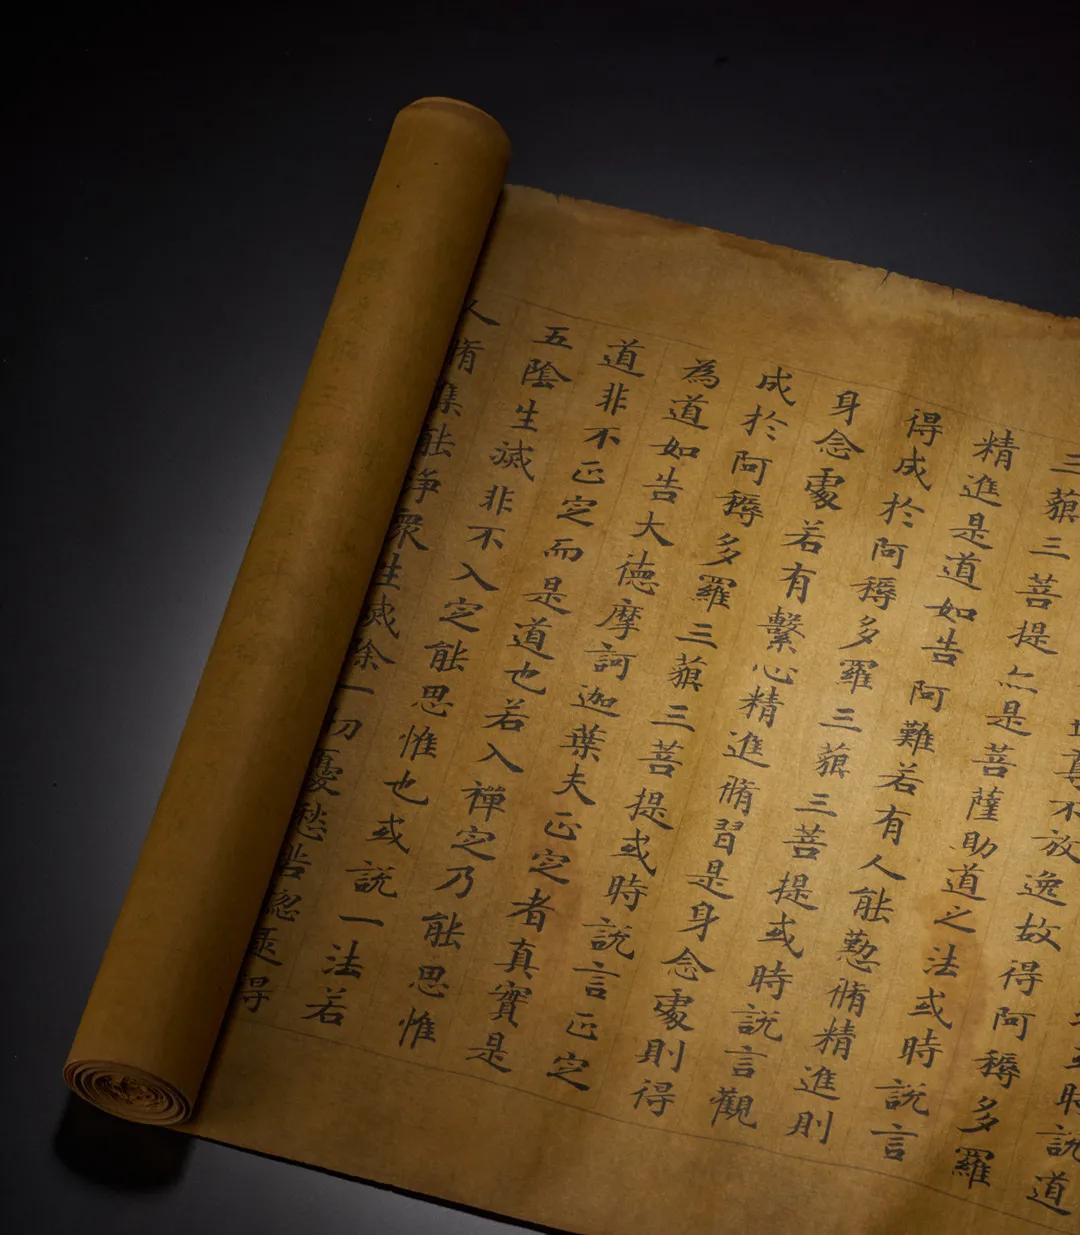 時說道
尊不放逸故得阿耨多羅
三藐三菩提亦是菩薩助道之法或時說言
精進是道如告阿難若有人能懃脩精進則
得成於阿耨多羅三藐三菩提或時說言觀
身念處若有繫心精進脩習是身念處則得
成於阿耨多羅三藐三菩提或時說言正定
為道如告大德摩訶迦葉夫正定者真實是
道非不正定而是道也若入禪定乃能思惟
五陰生滅非不入定能思惟也或說一法若
人脩集能淨眾生滅除一切憂愁苦惱得